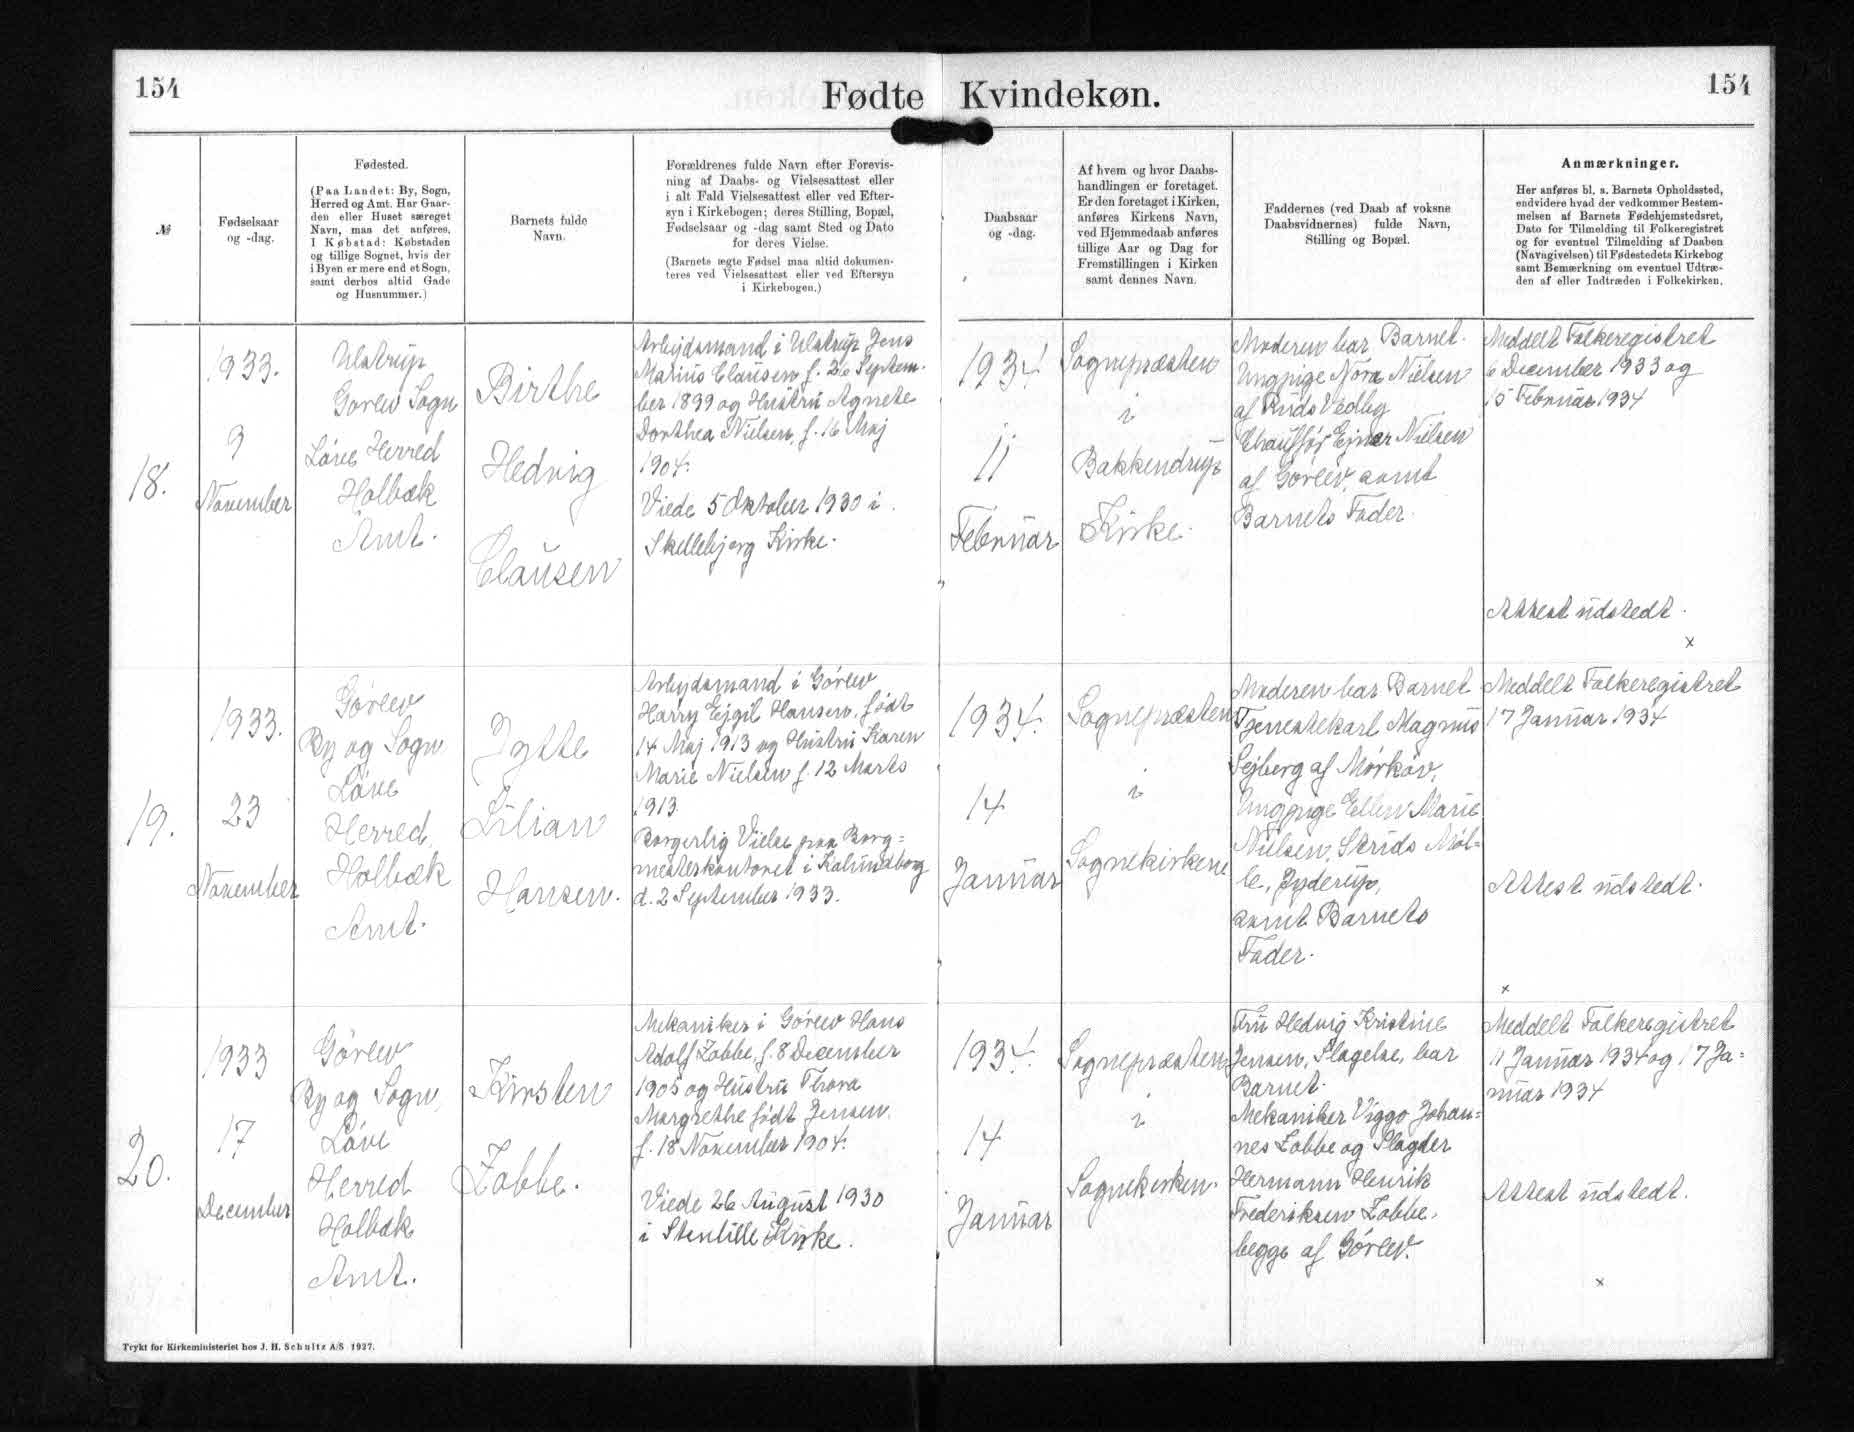 154
Fødte Kvindekøn.
154
№
Fødselsaar
og -dag.
Fødested.
(Paa Landet: By, Sogn,
Herred og Amt. Har Gaar-
den eller Huset særeget
Navn, maa det anføres.
I Købstad: Købstaden
og tillige Sognet, hvis der
i Byen er mere end et Sogn,
samt derhos altid Gade
og Husnummer.)
Barnets fulde
Navn.
Forældrenes fulde Navn efter Forevis-
ning af Daabs- og Vielsesattest eller
i alt Fald Vielsesattest eller ved Efter-
syn i Kirkebogen; deres Stilling, Bopæl,
Fødselsaar og -dag samt Sted og Dato
for deres Vielse.
(Barnets ægte Fødsel maa altid dokumen-
teres ved Vielsesattest eller ved Eftersyn
i Kirkebogen.)
Daabsaar
og -dag.
Af hvem og hvor Daabs-
handlingen er foretaget.
Er den foretaget i Kirken,
anføres Kirkens Navn,
ved Hjemmedaab anføres
tillige Aar og Dag for
Fremstillingen i Kirken
samt dennes Navn.
Faddernes (ved Daab af voksne
Daabsvidnernes) fulde Navn,
Stilling og Bopæl.
Anmærkninger.
Her anføres bl. a. Barnets Opholdssted,
endvidere hvad der vedkommer Bestem-
melsen af Barnets Fødehjemstedsret,
Dato for Tilmelding til Folkeregistret
og for eventuel Tilmelding af Daaben
(Navngivelsen) til Fødestedets Kirkebog
samt Bemærkning om eventuel Udtræ-
den af eller Indtræden i Folkekirken.
18.
1933.
9
November
Ulstrup
Gørlev Sogn
Løve Herred
Holbæk
Amt.
Birthe
Hedvig
Clausen
Arbejdsmand i Ulstrup Jens
Marius Clausen f. 26 Septem-
ber 1899 og Hustru Agnete
Dorthea Nielsen, f. 16 Maj
1904.
Viede 5 Oktober 1930 i
Skellebjerg Kirke.
1934
11
Februar
Sognepræsten
i
Bakkendrup
Kirke.
Moderen bar Barnet.
Ungpige Nora Nielsen
af Ruds Vedby
Chauffør Ejner Nielsen
af Gørlev, samt
Barnets Fader.
Meddelt Folkeregistret
6 December 1933 og
15 Februar 1934
Attest udstedt.
x
19.
1933.
23
November
Gørlev
By og Sogn
Løve
Herred,
Holbæk
Amt.
Jytte
Lilian
Hansen.
Arbejdsmand i Gørlev
Harry Ejgil Hansen, født
14 Maj 1913 og Hustru Karen
Marie Nielsen f. 12 Marts
1913
Borgerlig Vielse paa Borg=
mesterkontoret i Kalundborg
d. 2 September 1933.
1934.
14
Januar
Sognepræsten
i
Sognekirken
Moderen bar Barnet
Tjenestekarl Magnus
Sejberg af Mørkøv,
Ungpige Ellen Marie
Nielsen, Skrids Møl=
le, Jyderup,
samt Barnets
Fader.
Meddelt Folkeregistret
17 Januar 1934
Attest udstedt.
x
20.
1933
17
December
Gørlev
By og Sogn,
Løve
Herred
Holbæk
Amt.
Kirsten
Zobbe.
Mekaniker i Gørlev Hans
Adolf Zobbe, f. 8 December
1905 og Hustru Thora
Margrethe født Jensen,
f. 18 November 1904.
Viede 26 August 1930
i Stenlille Kirke.
1934.
14
Januar
Sognepræsten
i
Sognekirken.
Fru Hedvig Kristine
Jensen, Slagelse, bar
Barnet.
Mekaniker Viggo Johan=
nes Zobbe og Slagter
Hermann Henrik
Frederiksen Zobbe,
begge af Gørlev.
Meddelt Folkeregistret
11 Januar 1934 og 17 Ja=
nuar 1934
Attest udstedt.
x
Trykt for Kirkeministeriet hos J. H. Schultz A/S 1927.